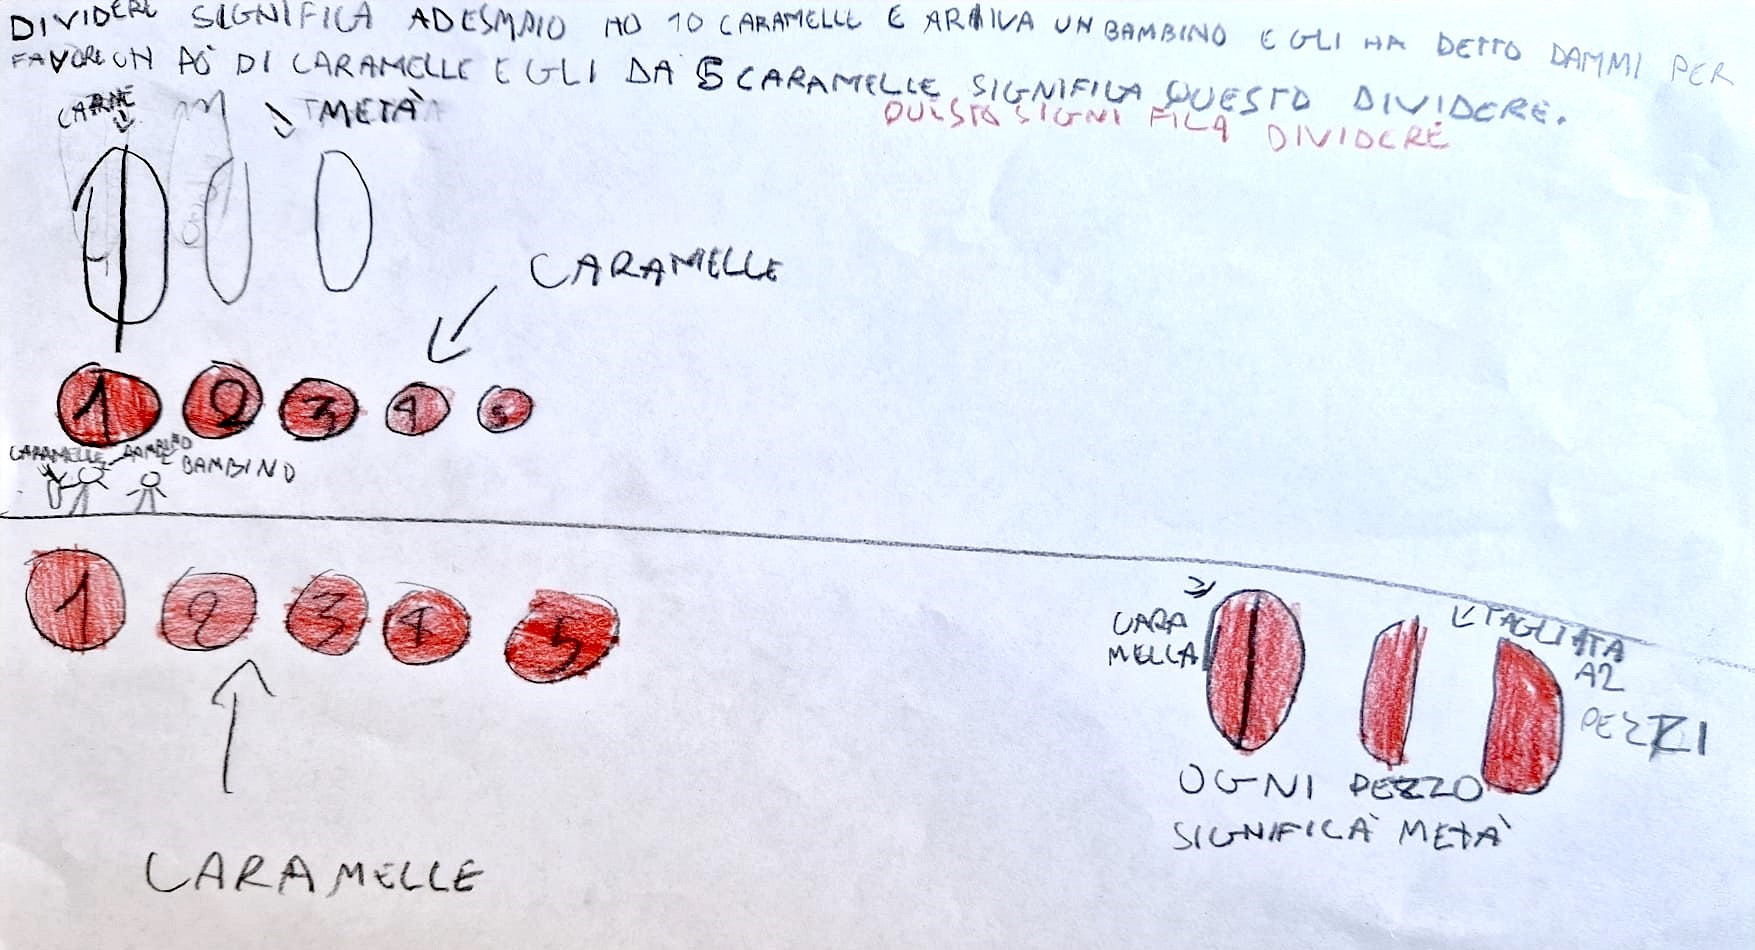 DIVIDERE SIGNIFICA ADESMPIO HO 10 CARAMELLE E ARRIVA UN BAMBINO E GLI HA DETTO DAMMI PER
FAVORE UN PÒ DI CARAMELLE E GLI DA 5 CARAMELLE SIGNIFICA QUESTO DIVIDERE.
QUESTO SIGNIFICA DIVIDERE
CARNE
METÀ
CARAMELLE
1 2 3 4 5
CARAMELLE BAMBINO
BAMBINO
1 2 3 4 5
CARAMELLE
CARA
MELLA
TAGLIATA
A2
PEZZI
OGNI PEZZO
SIGNIFICÀ METÀ